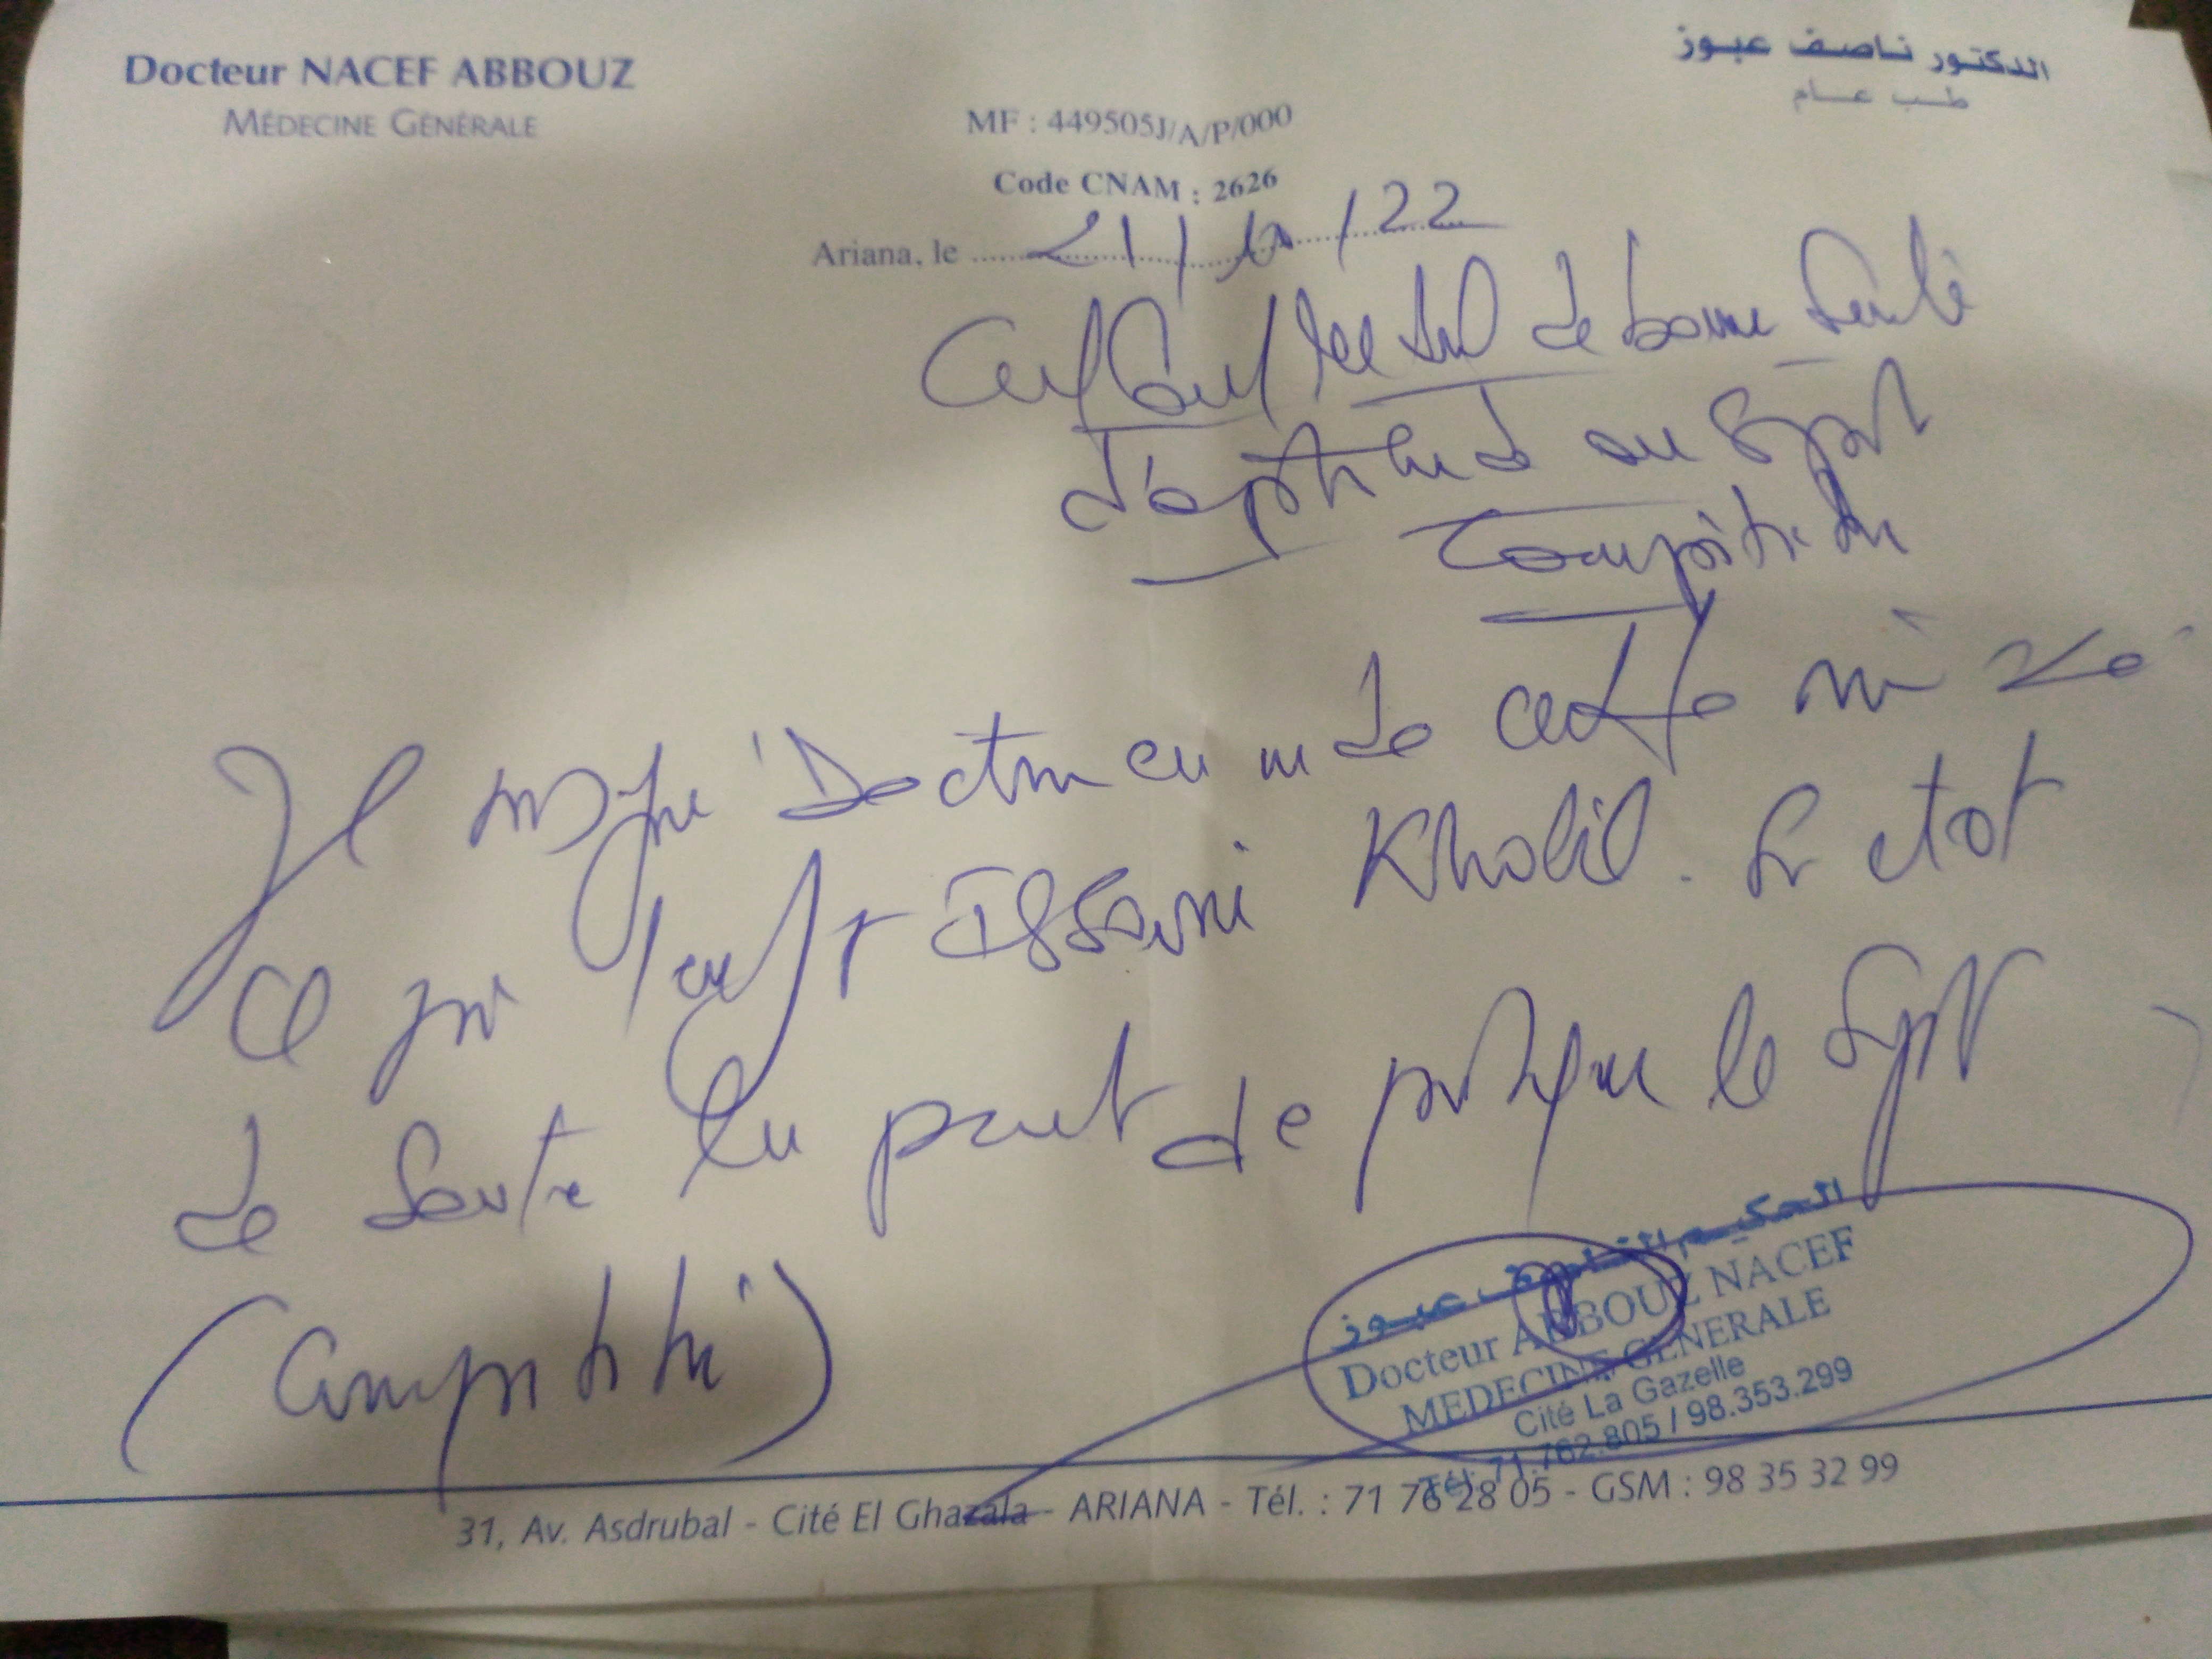 Docteur NACEF ABBOUZ
MÉDECINE GÉNÉRALE
الدكتور ناصف عبوز
طب عام
MF : 449505J/A/P/000
Code CNAM : 2626
Ariana, le 21/10/22
Certificat médical de bonne santé
d'aptitude au sport
compétition
Je soussigné Docteur en md certifie
ce jour l'enfant Issaoui Khalil. Son état
de santé lui permet de pratiquer le sport
(compétition)
الحكيم الناصف عبوز
Docteur ABBOUZ NACEF
MEDECINE GENERALE
Cité La Gazelle
Tél: 71.762.805 / 98.353.299
31, Av. Asdrubal - Cité El Ghazala - ARIANA - Tél. : 71 76 28 05 - GSM : 98 35 32 99